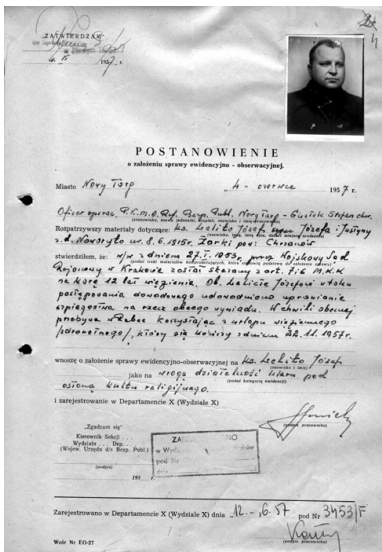 "ZATWIERDZAM"
4. VI 1957 r.
POSTANOWIENIE
o założeniu sprawy ewidencyjno - obserwacyjnej.
Miasto Nowy Targ 4 - czerwca 1957 r.
Oficer operac. P.K.M.O. Ref. Bezp. Publ. Nowy Targ - Gusiek Stefan chor.
Rozpatrzywszy materiały dotyczące: ks. Lelito Józef syn Józefa i Justyny
ur. 8.6.1915r. Żarki pow: Chrzanów
stwierdziłem, że: w/w z dniem 27.I.1953, przez Wojskowy Sąd
Rejonowy w Krakowie został skazany z art. 7 i 6 M.K.K
na karę 12 lat więzienia. Ob. Lelicie Józefowi w toku
postępowania dowodowego udowodniono uprawianie
szpiegostwa na rzecz obcego wywiadu. W chwili obecnej
przebywa w Rabce korzystając z urlopu więziennego
/zdrowotnego/, który się kończy z dniem 22.11.1957r.
wnoszę o założenie sprawy ewidencyjno-obserwacyjnej na ks. Lelito Józef
jako na wrogą działalność kleru pod
(podać kategorię ewidencji)
osłoną kultu religijnego.
i zarejestrowanie w Departamencie X (Wydziale X)
(podpis pracownika)
„Zgadzam się”
Kierownik Sekcji
Wydziału Dep.
(Wojew. Urzędu d/s Bezp. Publ.)
(podpis)
195 r.
pod Nr
Zarejestrowano w Departamencie X (Wydziale X) dnia 12 - 6. 57 pod Nr 3453/F
(podpis pracownika)
Wzór Nr EO-27